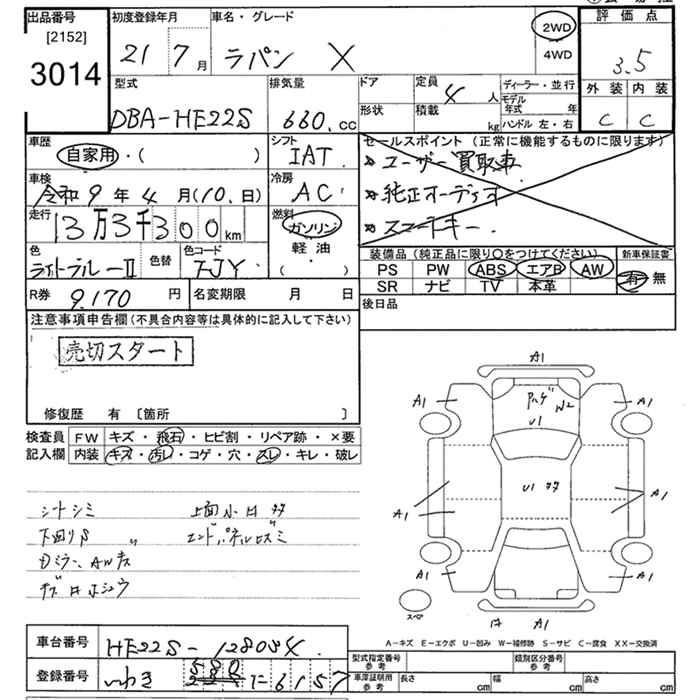 出品番号 [2152] 3014
初度登録年月 21 7 月
車名・グレード ラパン X
2WD
4WD
評価点 3.5
外装 内装
C C
型式 DBA-HE22S
排気量 660.cc
ドア
形状
定員 4 人
積載 kg
ディーラー・並行
モデル年式 年
ハンドル 左・右
車歴 自家用・( )
シフト IAT
セールスポイント(正常に機能するものに限ります)
ユーザー買取車
純正オーディオ
スマートキー
車検 令和 9 年 4 月(10.日)
冷房 AC
走行 3万3千300km
燃料 ガソリン
軽油
( )
色 色替
色コード ZJY
装備品(純正品に限り○をつけてください)
新車保証書 有 無
PS PW ABS エアB AW
SR ナビ TV 本革
R券 9,170 円
名変期限 月 日
後日品
注意事項申告欄(不具合内容等は具体的に記入して下さい)
売切スタート
修復歴 有 [箇所 ]
検査員記入欄
FW キズ・飛石・ヒビ割・リペア跡・×要
内装 キズ・汚レ・コゲ・穴・スレ・キレ・破レ
シートシミ
上面小凹
下回りS
A1
A1 A1
W2
U1
U1
A1 A1
A1 A1
A1
スペア
A-キズ E-エクボ U-凹み W-補修跡 S-サビ C-腐食 XX-交換済
車台番号 HE22S-
登録番号 いわき 6157
型式指定番号 参考
類別区分番号 参考
車庫証明用 参考 長さ cm 幅 cm 高さ cm